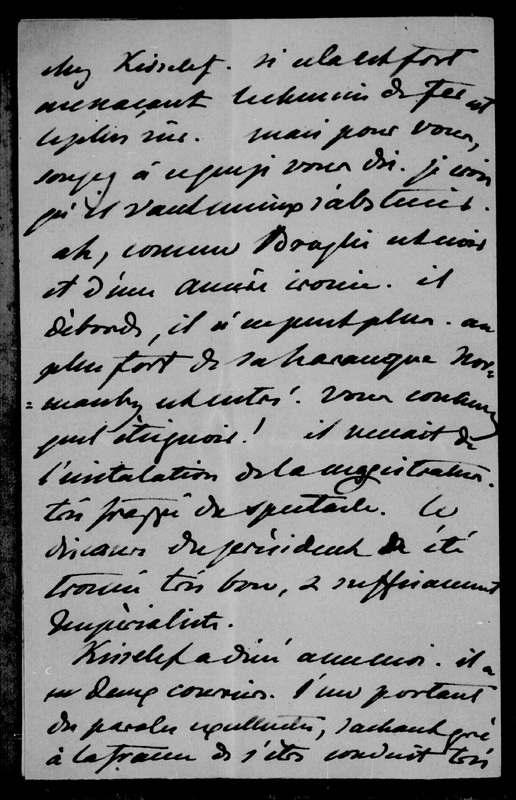 chez Kisselef. si cela est fort
menaçant le chemin de fer est
le plus sûr. mais pour vous,
songez à ce que je vous dis. je crois
qu'il vaut mieux s'abstenir.
ah, comme Broglie est noir
et d'une amère ironie. il
déborde, il n'en peut plus. au
plus fort de sa harangue Nor=
=manby est entré. vous connaissez
quel éteignoir! il venait de
l'installation de la magistrature.
très frappé du spectacle. le
discours du président a été
trouvé très bon, & suffisamment
Impérialiste.
Kisselef a diné avec moi. il a
eu deux courriers. l'un portant
des paroles excellentes, sachant gré
à la france de s'être conduit très